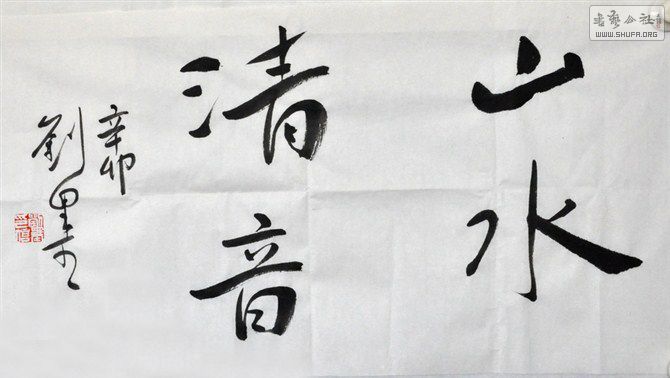 山水
清音
辛卯
劉
书艺公社
WWW.SHUFA.ORG